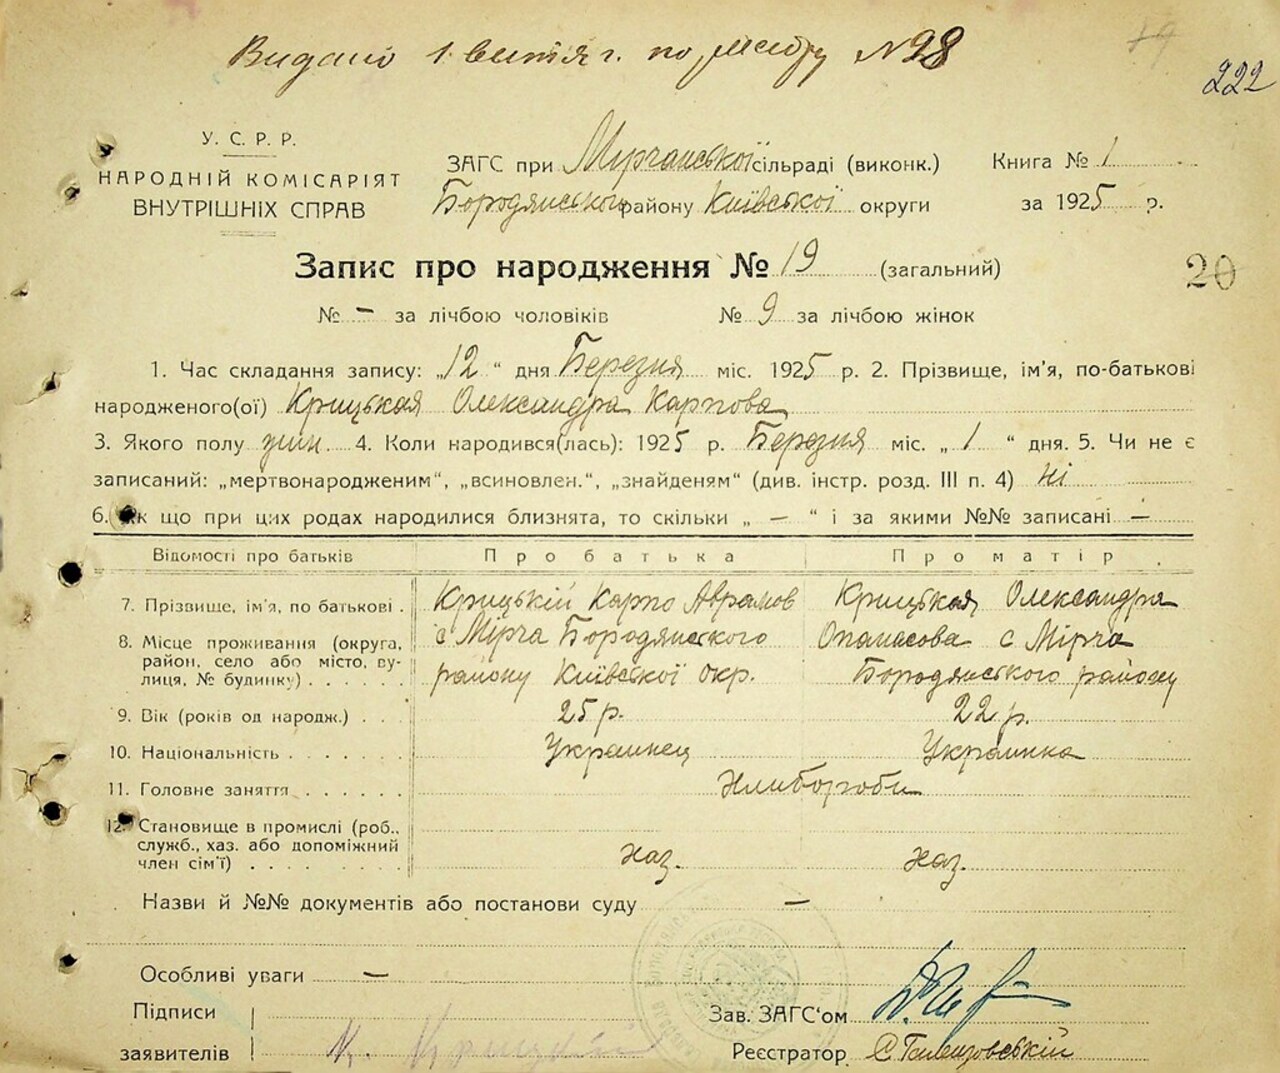 Видано 1 витяг. по реєстру №98
19
222
У. С. Р. Р.
НАРОДНІЙ КОМІСАРІЯТ
ВНУТРІШНІХ СПРАВ
ЗАГС при Мірчанській сільраді (виконк.)
Бородянського району Київської округи
Книга № 1
за 1925 р.
Запис про народження № 19 (загальний)
20
№ - за лічбою чоловіків № 9 за лічбою жінок
1. Час складання запису: „12“ дня Березня міс. 1925 р. 2. Прізвище, ім'я, по-батькові
народженого(ої) Крицькая Олександра Карпова
3. Якого полу жін. 4. Коли народився(лась): 1925 р. Березня міс. „ 1 “ дня. 5. Чи не є
записаний: „мертвонародженим“, „всиновлен.“, „знайденям“ (див. інстр. розд. III п. 4) ні
6. Як що при цих родах народилися близнята, то скільки „ — “ і за якими №№ записані —
Відомості про батьків Про батька Про матір
7. Прізвище, ім'я, по батькові . Крицькій Карпо Аврамов Крицькая Олександра
8. Місце проживання (округа, с Мірча Бородянского Опанасова с Мірча
район, село або місто, ву-
лиця, № будинку) . . . . . . району Київської окр. Бородянського району
9. Вік (років од народж.) . . . 25 р. 22 р.
10. Національність . . . . . . Украинец Украинка
11. Головне заняття . . . . . . Хлибороби
12. Становище в промислі (роб.,
служб., хаз. або допоміжний
член сім'ї) . . . . . . . . хаз. хаз.
Назви й №№ документів або постанови суду —
Особливі уваги —
Підписи
заявителів К. Крицкий
Зав. ЗАГС'ом
Реєстратор